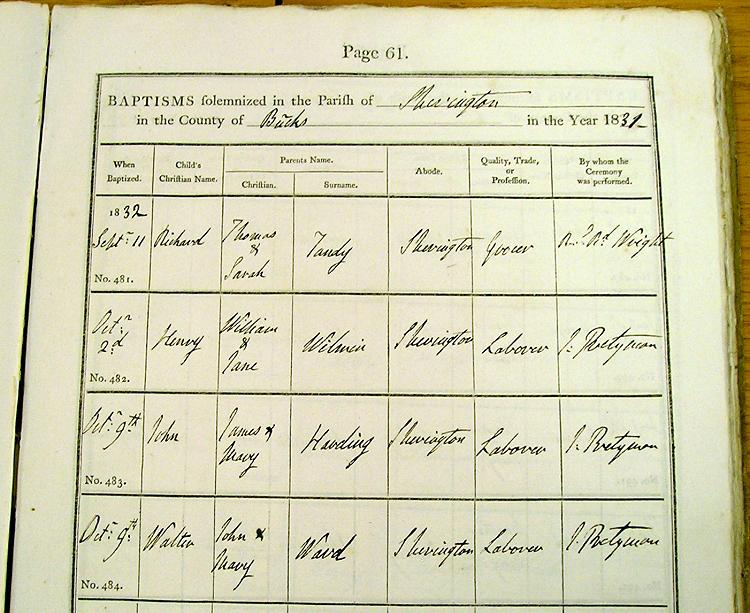 Page 61.
BAPTISMS solemnized in the Parish of Sherington
in the County of Bucks in the Year 1831
When Baptized.
Child's Christian Name.
Parents Name.
Christian.
Surname.
Abode.
Quality, Trade, or Profession.
By whom the Ceremony was performed.
1832
Septr 11
No. 481.
Richard
Thomas
&
Sarah
Tandy
Sherington
Grocer
Rd Wright
Octr
2d
No. 482.
Henry
William
&
Jane
Wilmin
Sherington
Laborer
J. Pretyman
Octr 9th
No. 483.
John
James &
Mary
Harding
Sherington
Laborer
J. Pretyman
Octr 9th
No. 484.
Walter
John &
Mary
Ward
Sherington
Laborer
J. Pretyman